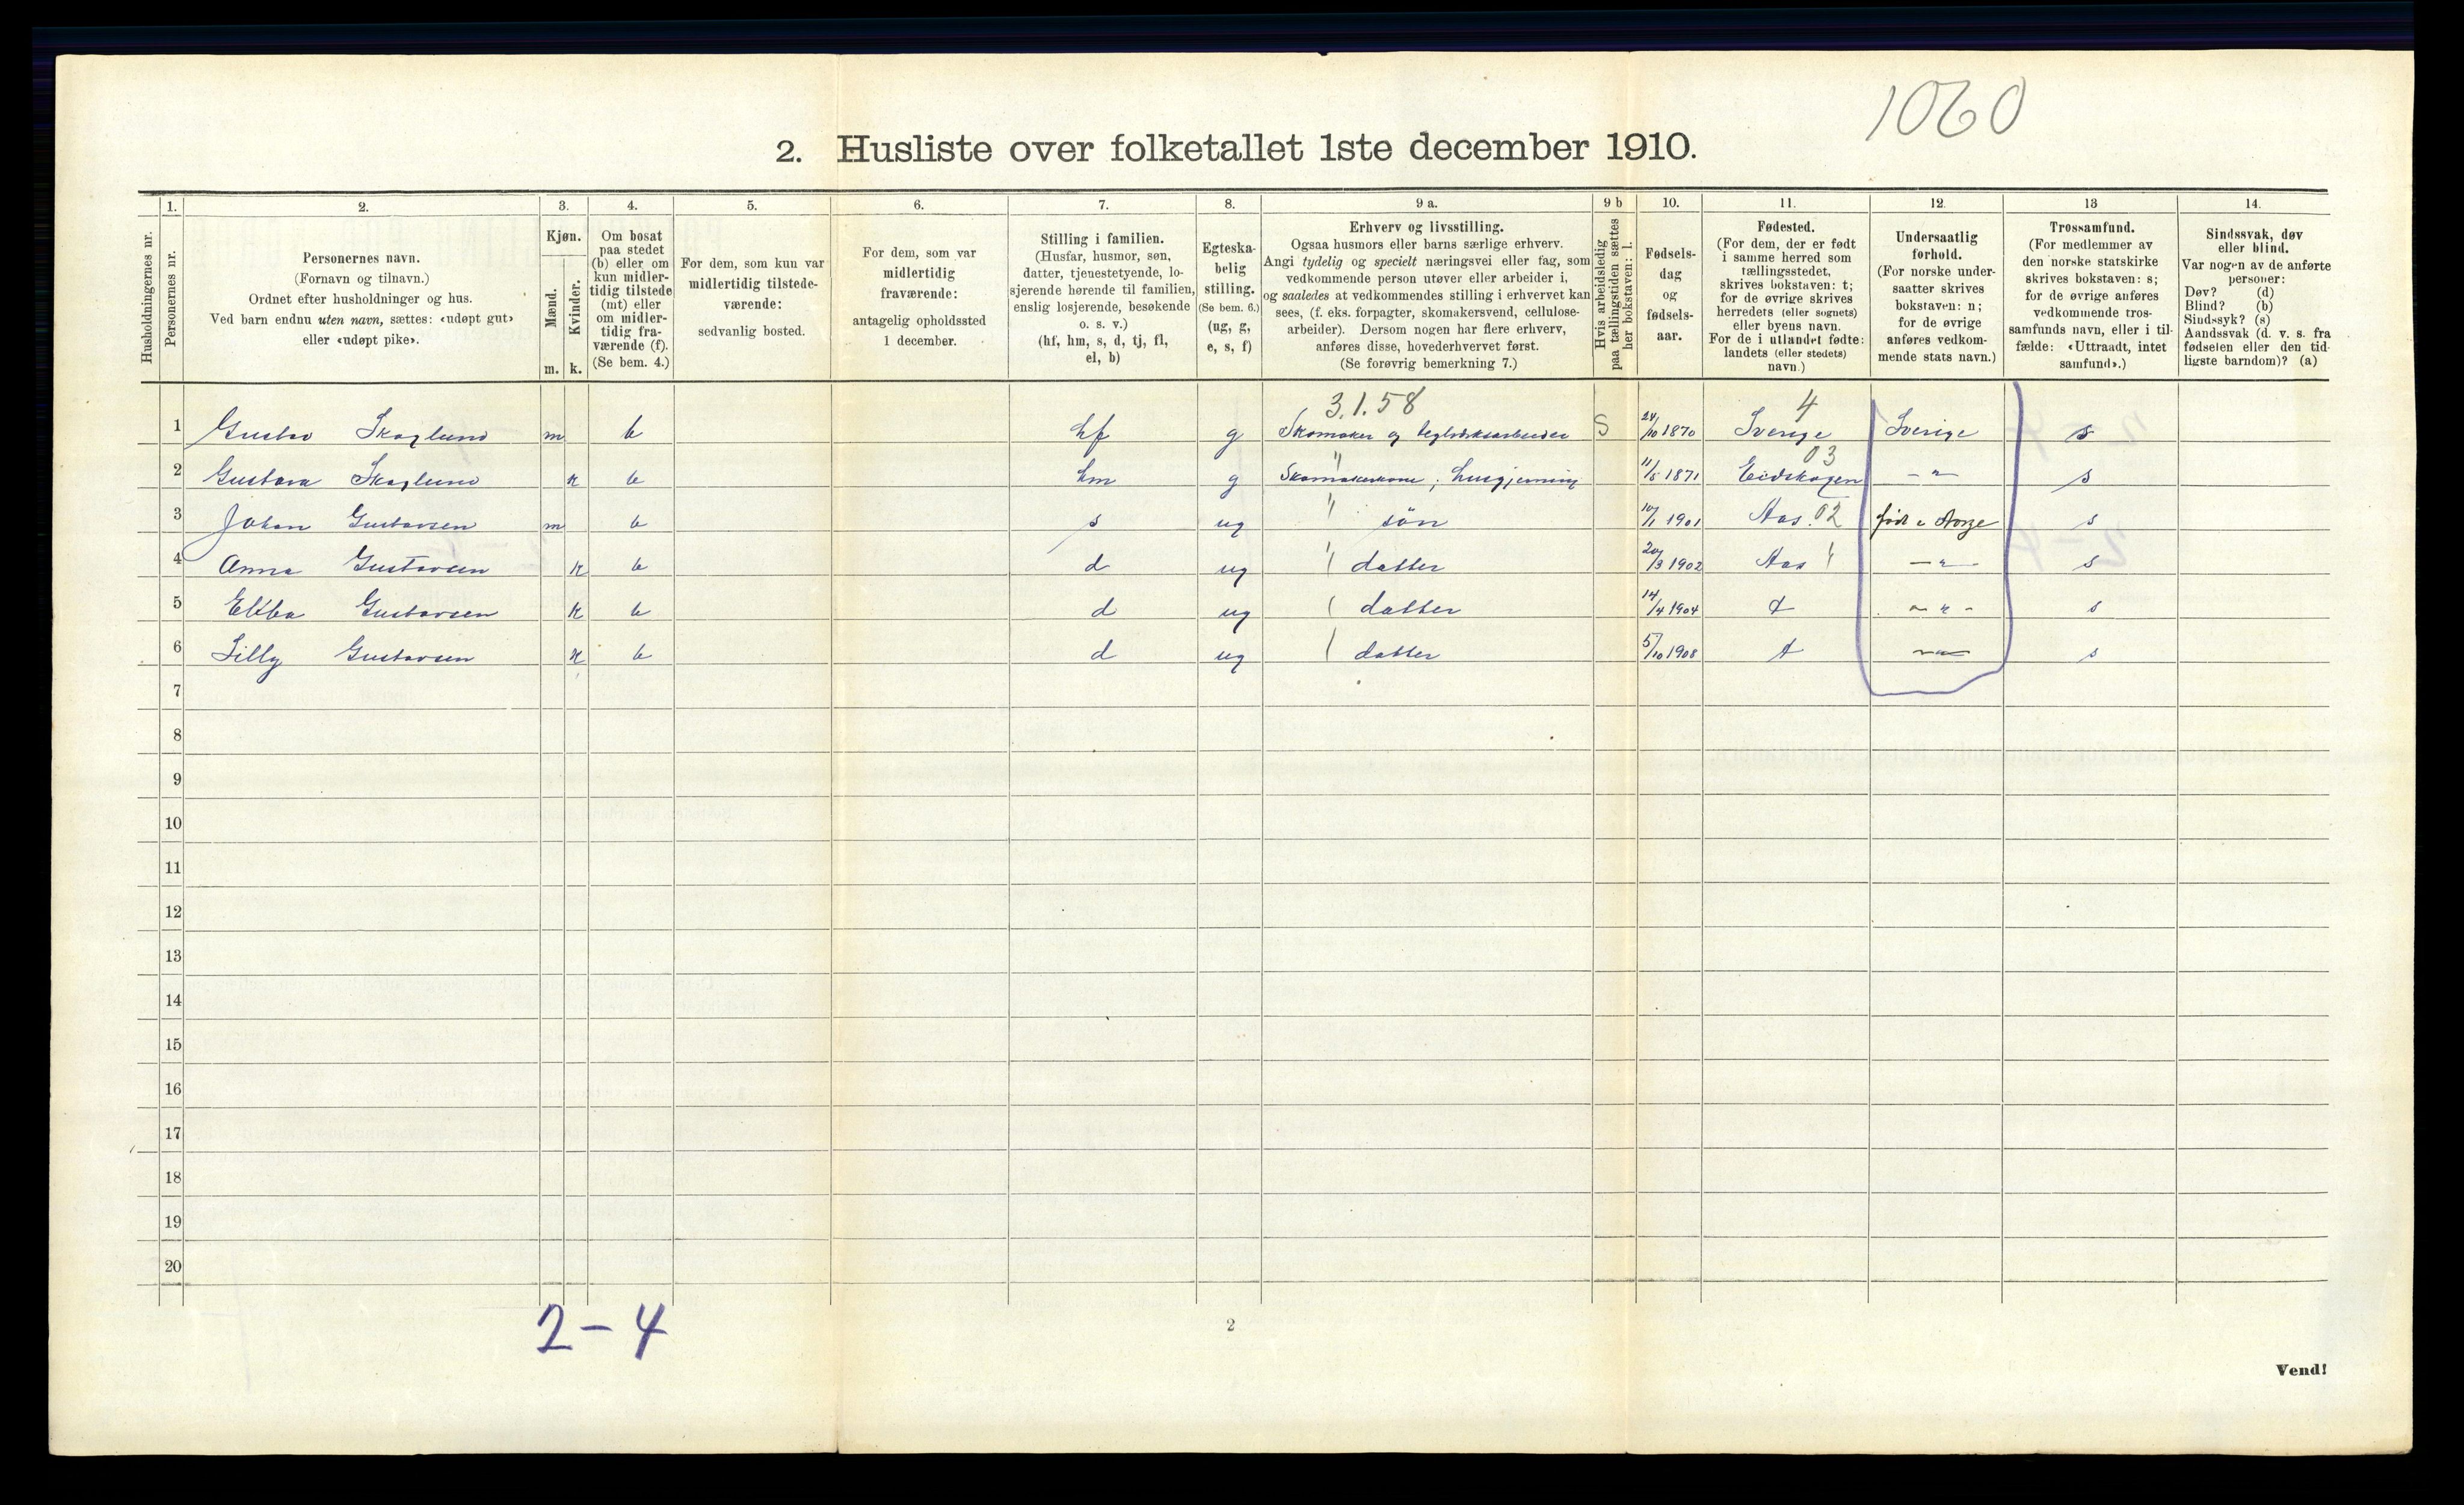 1060
2. Husliste over folketallet 1ste december 1910.
1. 2. 3. 4. 5. 6. 7. 8. 9 a. 9 b 10. 11. 12. 13 14.
Husholdningernes nr.
Personernes nr.
Personernes navn.
(Fornavn og tilnavn.)
Ordnet efter husholdninger og hus.
Ved barn endnu uten navn, sættes: «udøpt gut»
eller «udøpt pike».
Kjøn.
Mænd.
Kvinder.
m. k.
Om bosat
paa stedet
(b) eller om
kun midler-
tidig tilstede
(mt) eller
om midler-
tidig fra-
værende (f).
(Se bem. 4.)
For dem, som kun var
midlertidig tilstede-
værende:
sedvanlig bosted.
For dem, som var
midlertidig
fraværende:
antagelig opholdssted
1 december.
Stilling i familien.
(Husfar, husmor, søn,
datter, tjenestetyende, lo-
sjerende hørende til familien,
enslig losjerende, besøkende
o. s. v.)
(hf, hm, s, d, tj, fl,
el, b)
Egteska-
belig
stilling.
(Se bem. 6.)
(ug, g,
e, s, f)
Erhverv og livsstilling.
Ogsaa husmors eller barns særlige erhverv.
Angi tydelig og specielt næringsvei eller fag, som
vedkommende person utøver eller arbeider i,
og saaledes at vedkommendes stilling i erhvervet kan
sees, (f. eks. forpagter, skomakersvend, cellulose-
arbeider). Dersom nogen har flere erhverv,
anføres disse, hovederhvervet først.
(Se forøvrig bemerkning 7.)
Hvis arbeidsledig
paa tællingstiden sættes
her bokstaven: l.
Fødsels-
dag
og
fødsels-
aar.
Fødested.
(For dem, der er født
i samme herred som
tællingsstedet,
skrives bokstaven: t;
for de øvrige skrives
herredets (eller sognets)
eller byens navn.
For de i utlandet fødte:
landets (eller stedets)
navn.)
Undersaatlig
forhold.
(For norske under-
saatter skrives
bokstaven: n;
for de øvrige
anføres vedkom-
mende stats navn.)
Trossamfund.
(For medlemmer av
den norske statskirke
skrives bokstaven: s;
for de øvrige anføres
vedkommende tros-
samfunds navn, eller i til-
fælde: «Uttraadt, intet
samfund».)
Sindssvak, døv
eller blind.
Var nogen av de anførte
personer:
Døv? (d)
Blind? (b)
Sindssyk? (s)
Aandssvak (d. v. s. fra
fødselen eller den tid-
ligste barndom)? (a)
3.1.58 4
1 Gustav Skoglund m b hf g Skomaker og teglverksarbeider S 24/10 1870 Sverige Sverige s
03
2 Gustava Skoglund k b hm g Skomakerkone, husgjerning 11/5 1871 Eidskogen — " — s
3 Johan Gustavsen m b s ug " søn 10/1 1901 Aas 02 født i Norge s
4 Anna Gustavsen k b d ug " datter 20/3 1902 Aas " — " — s
5 Ebba Gustavsen k b d ug datter 14/4 1904 t — " — s
6 Lilly Gustavsen k b d ug datter 5/10 1908 t — " — s
7
8
9
10
11
12
13
14
15
16
17
18
19
20
2 - 4
2
Vend!